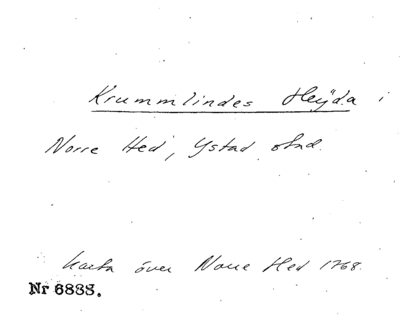 Krummlindes Heÿda i
Norre Hed, Ystad
karta över Norre Hed 1768.
Nr 6888.